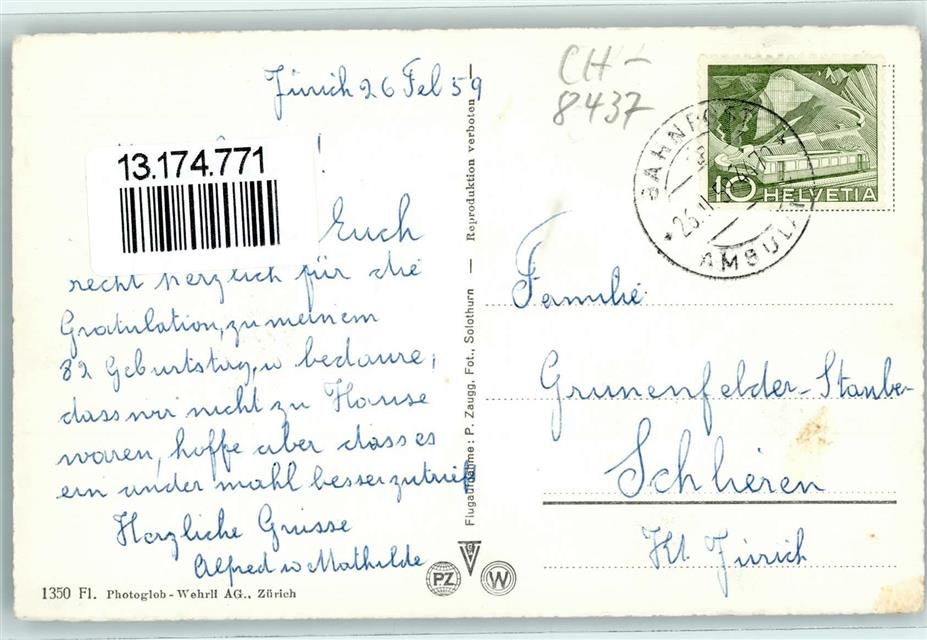 Zürich 26 Feb 59
13.174.771
Euch
recht herzlich für die
Gratulation, zu meinem
82 Geburtstag, u bedaure,
dass wir nicht zu Hause
waren, hoffe aber dass es
ein ander mahl besser zutrift
Herzliche Grüsse
Alfred u Mathilde
1350 Fl. Photoglob - Wehrli AG., Zürich
Flugaufnahme: P. Zaugg, Fot., Solothurn — Reproduktion verboten
PZ
W
CH-
8437
10 HELVETIA
BAHNPOST
AMBULANT
Familie
Grunenfelder-Stauber
Schlieren
Kt. Zürich